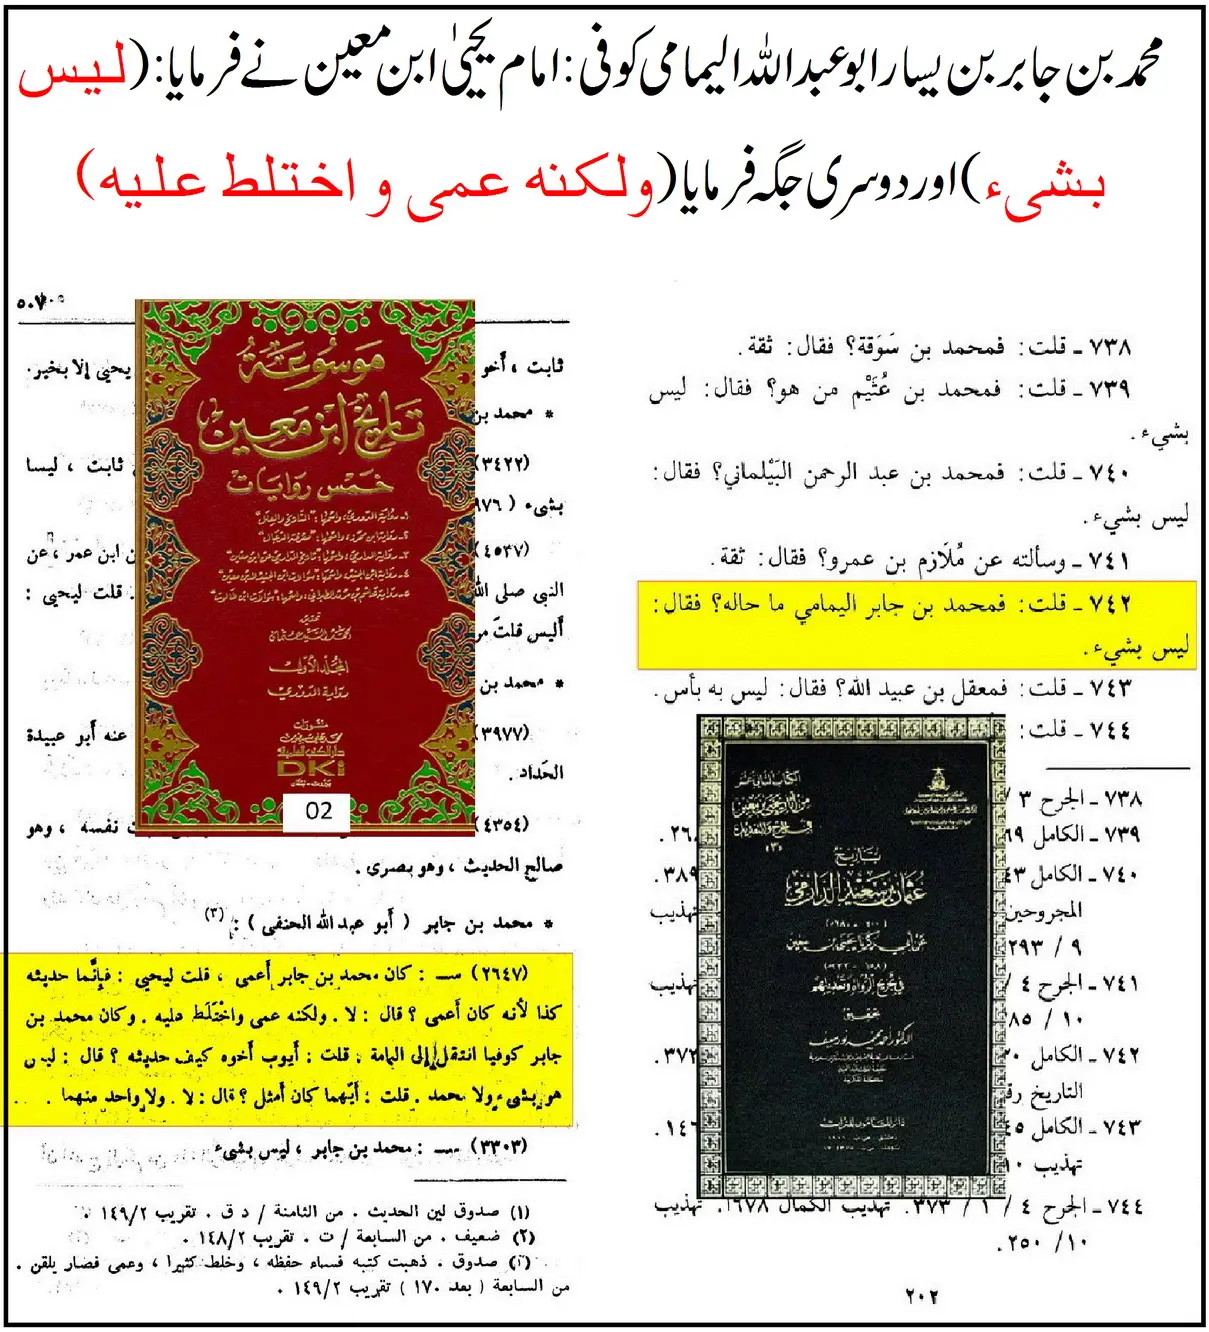 محمد بن جابر بن یسار ابو عبداللہ الیمامی کوفی : امام یحییٰ ابن معین نے فرمایا : (ليس
بشیء) اور دوسری جگہ فرمایا (ولكنه عمى و اختلط عليه)
٧٣٨ ـ قلت : فمحمد بن سَوَقة؟ فقال : ثقة .
٧٣٩ ـ قلت : فمحمد بن عُثَيْم من هو؟ فقال : ليس
بشيء .
٧٤٠ ـ قلت : فمحمد بن عبد الرحمن البَيْلماني؟ فقال :
ليس بشيء .
٧٤١ ـ وسألته عن مُلَازم بن عمرو؟ فقال : ثقة .
٧٤٢ ـ قلت : فمحمد بن جابر اليمامي ما حاله؟ فقال :
ليس بشيء .
٧٤٣ ـ قلت : فمعقل بن عبيد الله؟ فقال : ليس به بأس .
٧٤٤ ـ قلت :
٧٣٨ ـ الجرح ٣ /
٧٣٩ ـ الكامل
٧٤٠ ـ الكامل
٣٨٩ .
المجروحين
تهذيب
٩ / ٢٩٣
٧٤١ ـ الجرح ٤ /
تهذيب
١٠ /
٧٤٢ ـ الكامل
٣٧٢ .
التاريخ
٧٤٣ ـ الكامل
تهذيب ١٠
٧٤٤ ـ الجرح ٤ / ١ / ٣٧٣ . تهذيب الكمال ١٦٧٨ . تهذيب
١٠ / ٢٥٠ .
٢٠٢
تاريخ
عثمان بن سعيد الدارمي
عن أبي زكريا يحيى بن معين
في تجريح الرواة وتعديلهم
تحقيق
الدكتور أحمد محمد نور سيف
دار المأمون للتراث
٥٠٧
ثابت ، أخو
يحيى إلا بخير .
* محمد بن
(٣٤٢٢)
ثابت ، ليسا
بشىء (
(٤٥٣٧)
ن ابن عمر ، عن
النبي صلى الله
قلت ليحيى :
أليس قلت
* محمد بن
(٣٩٧٧)
عنه أبو عبيدة
الحداد .
(٤٣٥٤)
ت نفسه ، وهو
صالح الحديث ، وهو بصرى .
* محمد بن جابر ( أبو عبد الله الحنفى ) : (٣)
(٢٦٤٧) ســ : كان محمد بن جابر أعمى ، قلت ليحيى : فإنَّما حديثه
كذا لأنه كان أعمى ؟ قال : لا . ولكنه عمى واخْتَلَط عليه . وكان محمد بن
جابر كوفيا انتقل إلى اليمامة ، قلت : أيوب أخوه كيف حديثه ؟ قال : ليس
هو بشىء ولا محمد . قلت : أيّهما كان أمثل ؟ قال : لا . ولا واحد منهما .
(٣٣٠٣) ســ : محمد بن جابر ، ليس بشىء
(١) صدوق لين الحديث . من الثامنة / د ق . تقريب ١٤٩/٢ .
(٢) ضعيف . من السابعة / ت . تقريب ١٤٨/٢ .
(٣) صدوق . ذهبت كتبه فساء حفظه ، وخلط كثيرا ، وعمى فصار يلقن .
من السابعة ( بعد ١٧٠ ) تقريب ١٤٩/٢ .
موسوعة
تاريخ ابن معين
خمس روايات
تحقيق
المجلد الأول
رواية الدوري
منشورات
محمد علي بيضون
دار الكتب العلمية
DKi
بيروت - لبنان
02